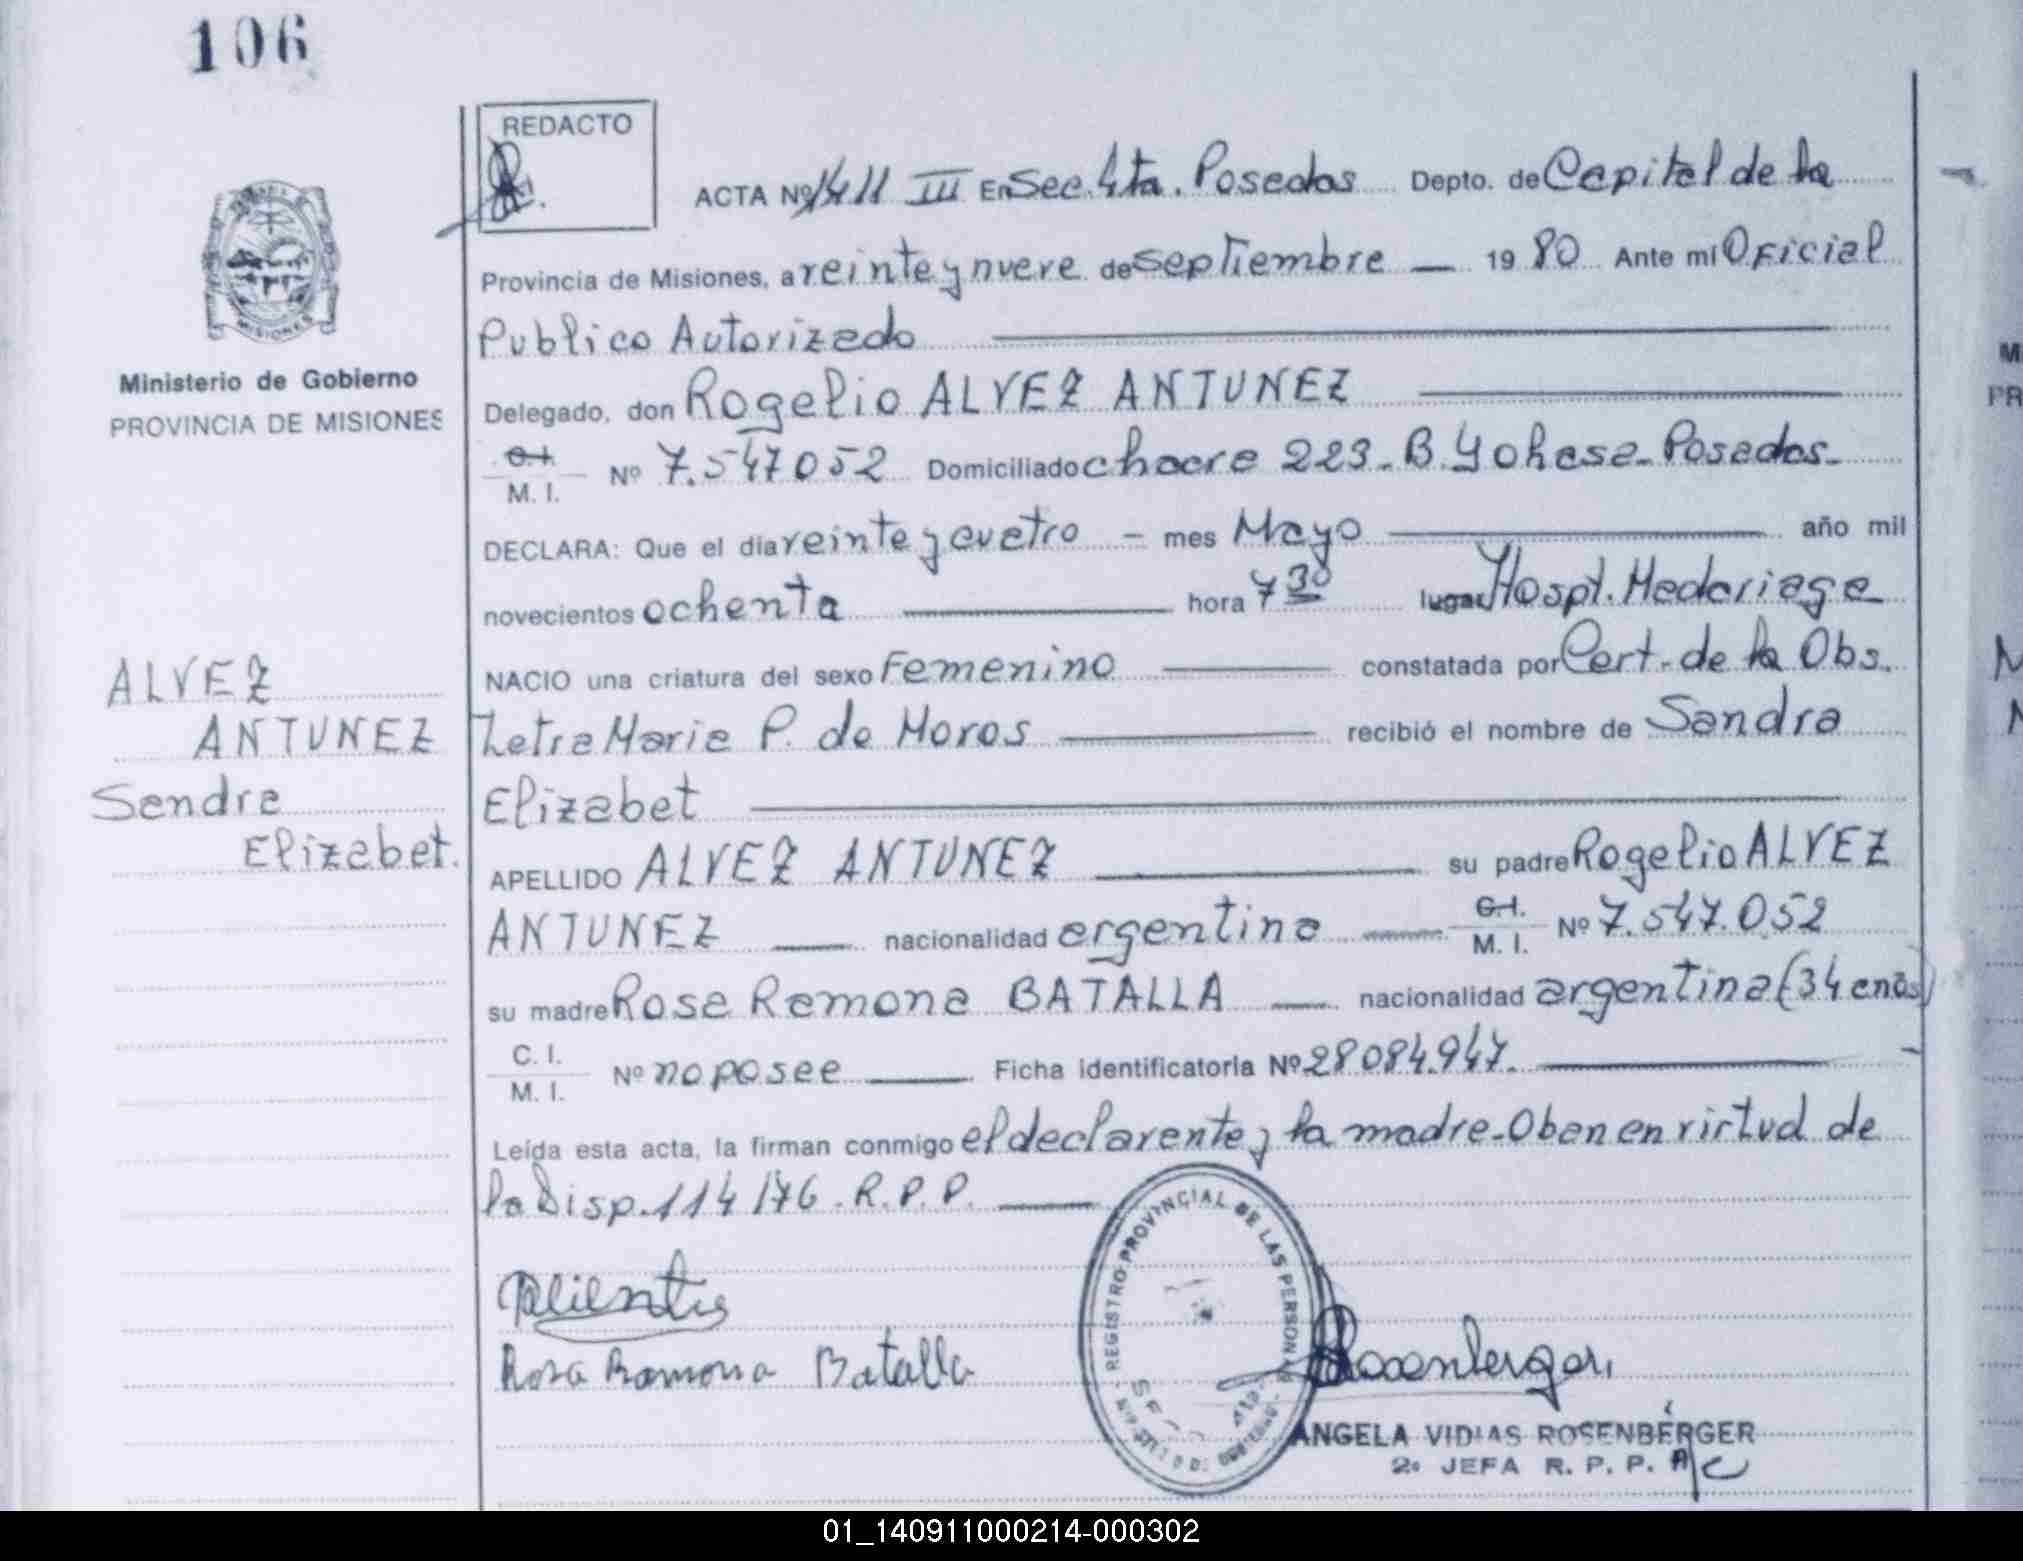 106
REDACTO
ACTA Nº 1411 III En Sec. 4ta. Posadas Depto. de Capital de la
Provincia de Misiones, a veinte y nueve de septiembre — 19 80 Ante mí Oficial
Publico Autorizado
Ministerio de Gobierno
PROVINCIA DE MISIONES
Delegado, don Rogelio ALVEZ ANTUNEZ
C. I. / M. I. Nº 7.547052 Domiciliado chacra 223 - B. Yohasa - Posadas -
DECLARA: Que el día veinte y cuatro – mes Mayo año mil
novecientos ochenta hora 7 30 lugar Hospl. Madariaga
NACIO una criatura del sexo Femenino constatada por Cert. de la Obs.
Maria P. de Moros recibió el nombre de Sandra
Elizabet
APELLIDO ALVEZ ANTUNEZ su padre Rogelio ALVEZ
ANTUNEZ nacionalidad argentino C. I. / M. I. Nº 7.547.052
su madre Rosa Ramona BATALLA nacionalidad argentina (34 años)
C. I. / M. I. Nº no posee Ficha identificatoria Nº 28084.947.
Leída esta acta, la firman conmigo el declarante y la madre - Oban en virtud de
la Disp. 114/76. R.P.P.
ALVEZ
ANTUNEZ
Sandra
Elizabet.
Rosa Ramona Batalla
REGISTRO PROVINCIAL DE LAS PERSONAS
Rosenberger
ANGELA VIDIAS ROSENBERGER
2º JEFA R. P. P. A/C
MISIONES
01_140911000214-000302